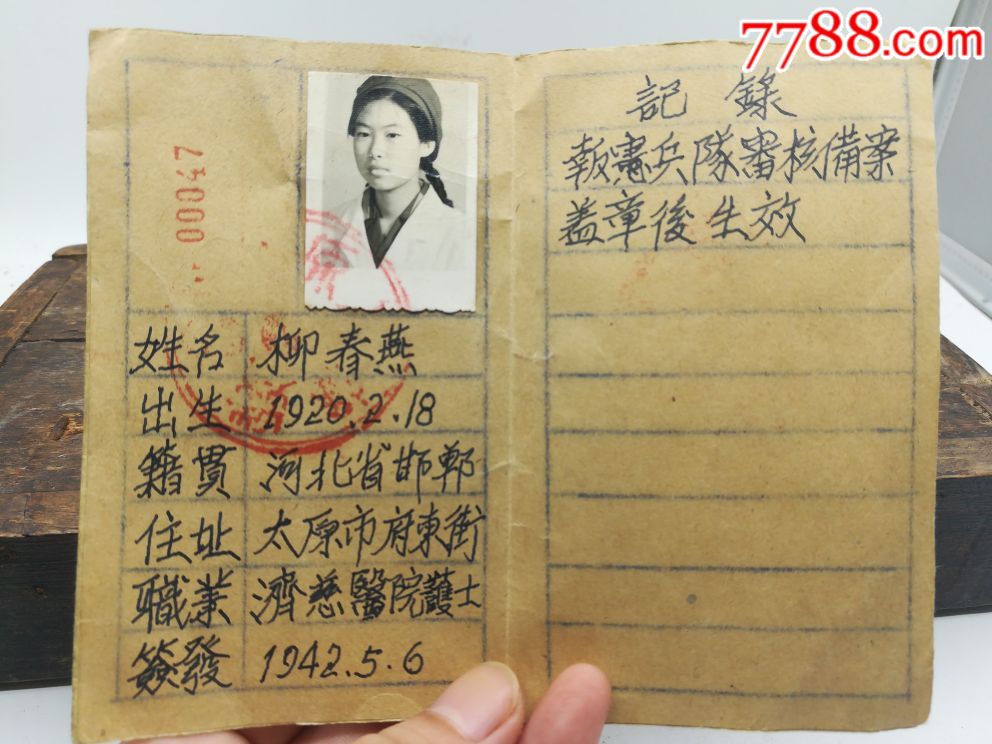 7788.com
00047
姓名 柳春燕
出生 1920.2.18
籍貫 河北省邯鄲
住址 太原市府東街
職業 濟慈醫院護士
簽發 1942.5.6
記錄
報憲兵隊審核備案
蓋章後生效